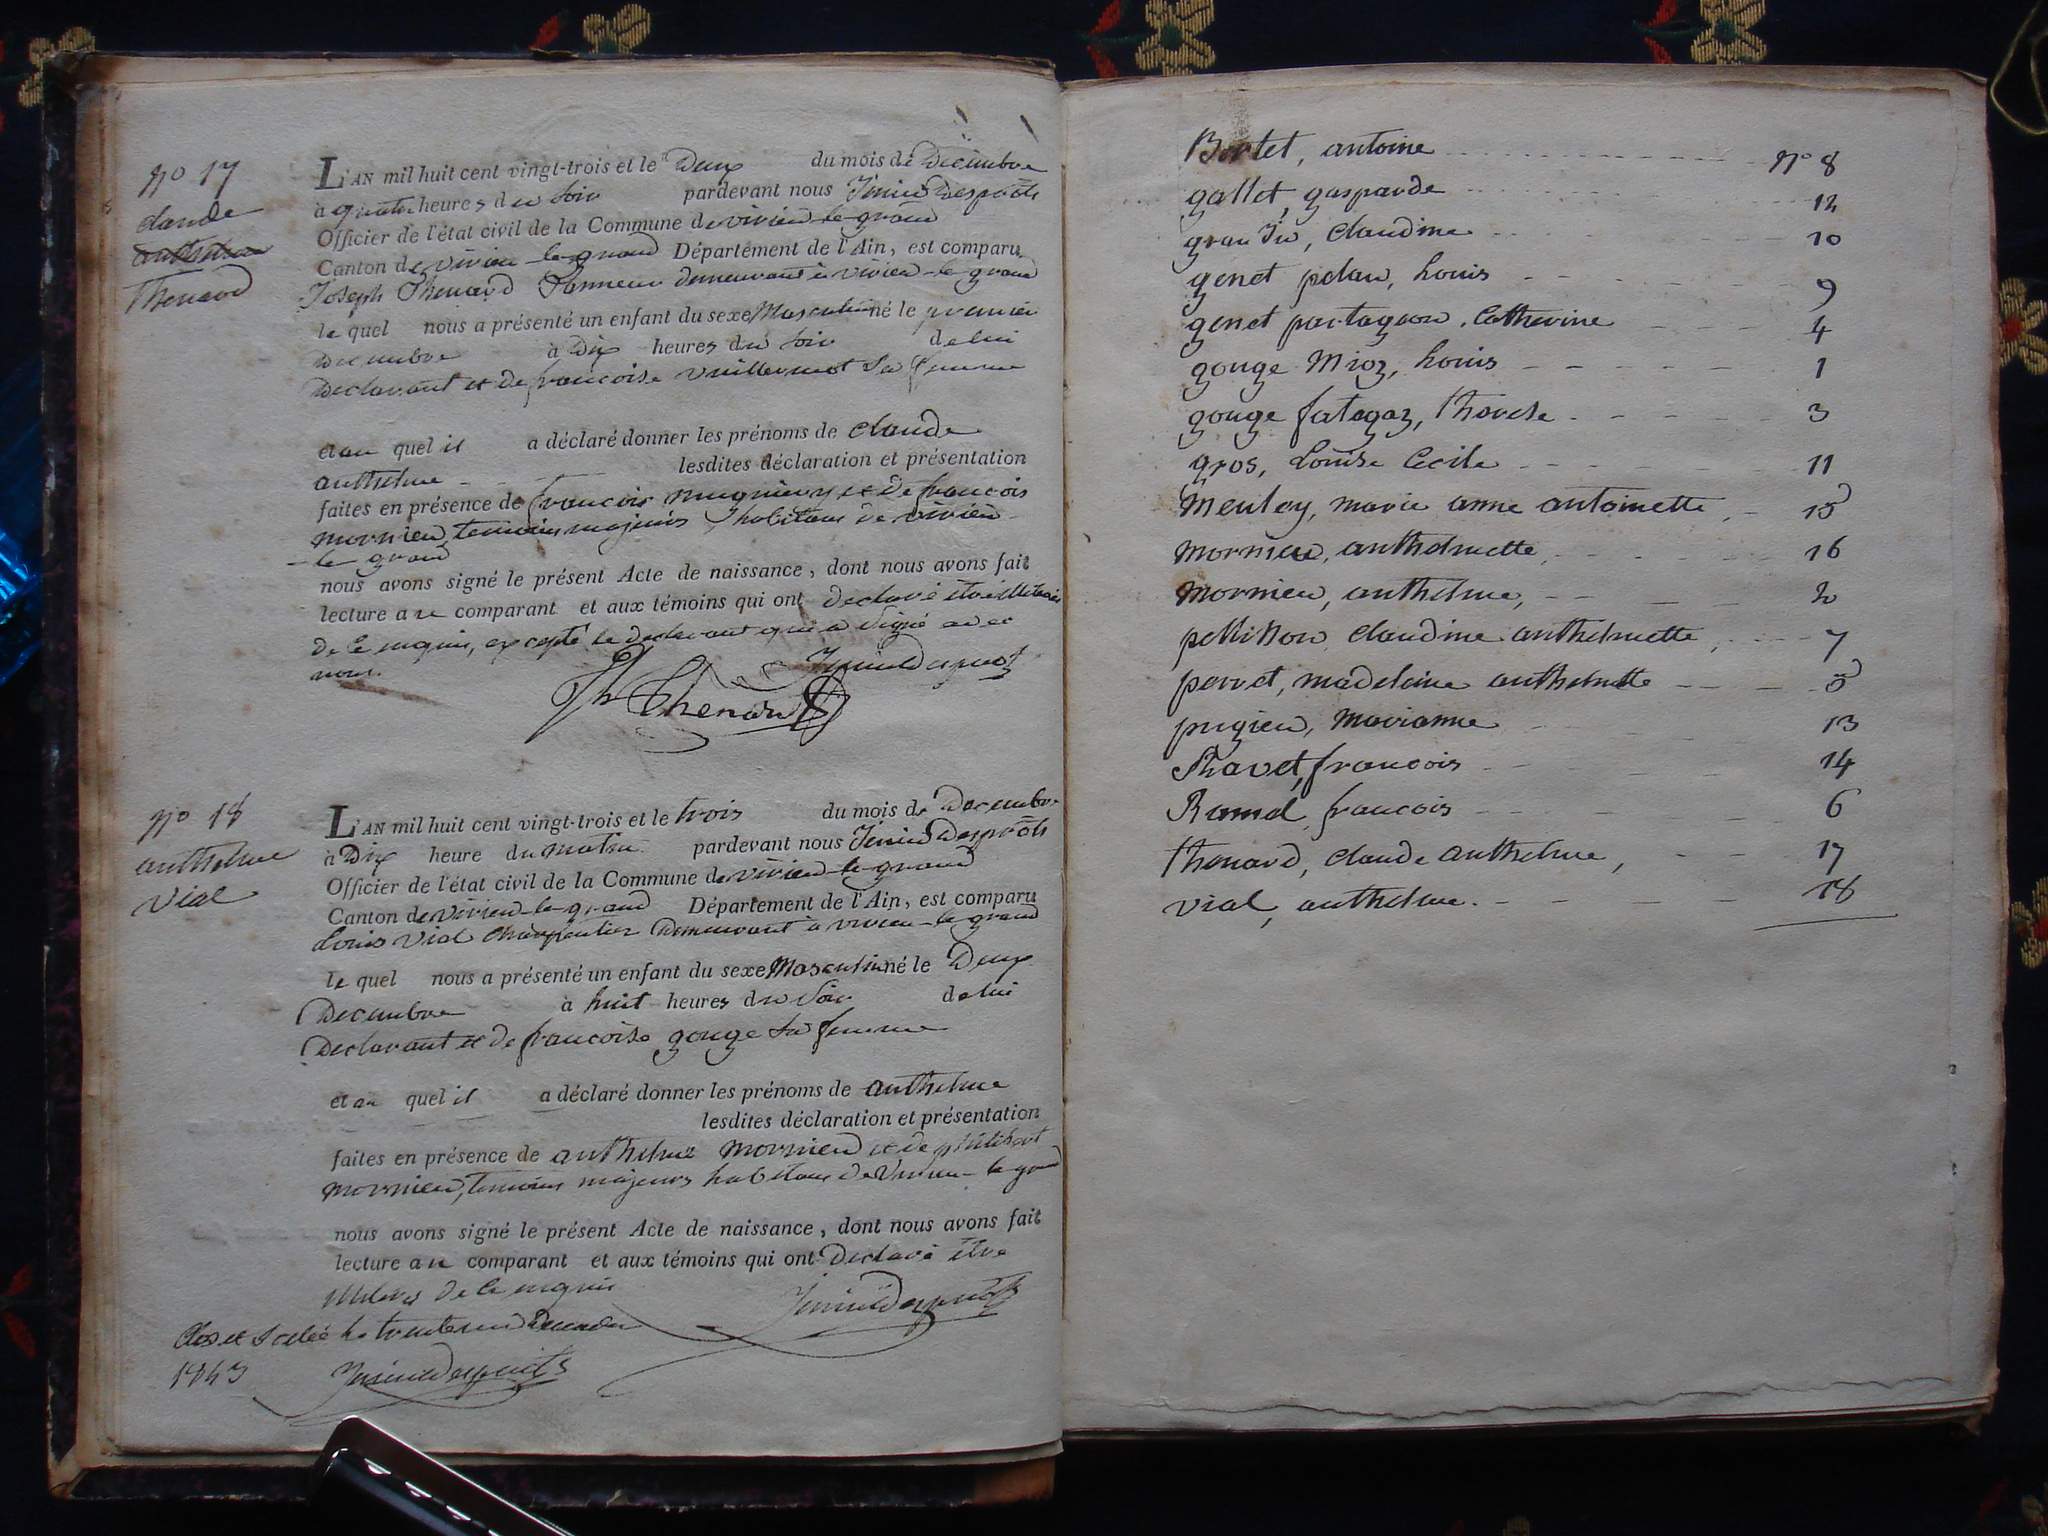 no 17
claude
anthelme
Thenard
L'AN mil huit cent vingt-trois et le Deux du mois de Décembre
à quatre heures du soir pardevant nous Jenin Desprôts
Officier de l'état civil de la Commune de virieu-le-grand
Canton de virieu le-grand Département de l'Ain, est comparu
Joseph Thenard Tanneur demeurant à virieu-le-grand
le quel nous a présenté un enfant du sexe Masculin né le premier
Decembre à Dix heures du soir de lui
Declarant et de francoise vuillermot sa femme
et au quel il a déclaré donner les prénoms de claude
anthelme lesdites déclaration et présentation
faites en présence de francois mugnier et de francois
mornieu, temoins majeurs habitans de virieu
-le grand
nous avons signé le présent Acte de naissance, dont nous avons fait
lecture au comparant et aux témoins qui ont declaré être illiteres
de ce enquis, excepté le declarant qui a signé avec
nous.
Jenin Desprots
Jh Thenard
no 18
anthelme
vial
L'AN mil huit cent vingt-trois et le trois du mois de Decembre
à Dix heure du matin pardevant nous Jenin Desprôts
Officier de l'état civil de la Commune de virieu-le-grand
Canton de virieu-le-grand Département de l'Ain, est comparu
Louis vial charpentier Demeurant à virieu-le-grand
le quel nous a présenté un enfant du sexe Masculin né le Deux
Decembre à huit heures du soir de lui
Declarant et de francoise gouge sa femme
et au quel il a déclaré donner les prénoms de anthelme
lesdites déclaration et présentation
faites en présence de anthelme mornieu et de philibert
mornieu, temoins majeurs habitans de virieu-le grand
nous avons signé le présent Acte de naissance, dont nous avons fait
lecture au comparant et aux témoins qui ont Declaré être
illiteres de ce enquis
Jenin Desprots
Clos et arreté le trente un Decembre
1823
Jenin Desprots
Bertet, antoine no 8
gallet, gasparde 12
grandin, claudine 10
genet pelan, louis 9
genet partagon, Catherine 4
gouge Mioz, louis 1
gouge fatagaz, therese 3
gros, Louise Cecile 11
Mentoy, marie anne antoinette, 15
mornieu, anthelmette, 16
mornieu, anthelme, 2
pellisson, claudine anthelmette, 7
perret, madeleine anthelmette 5
pugieu, marianne 13
Ravet, francois 14
Ramel, francois 6
thenard, claude anthelme, 17
vial, anthelme. 18